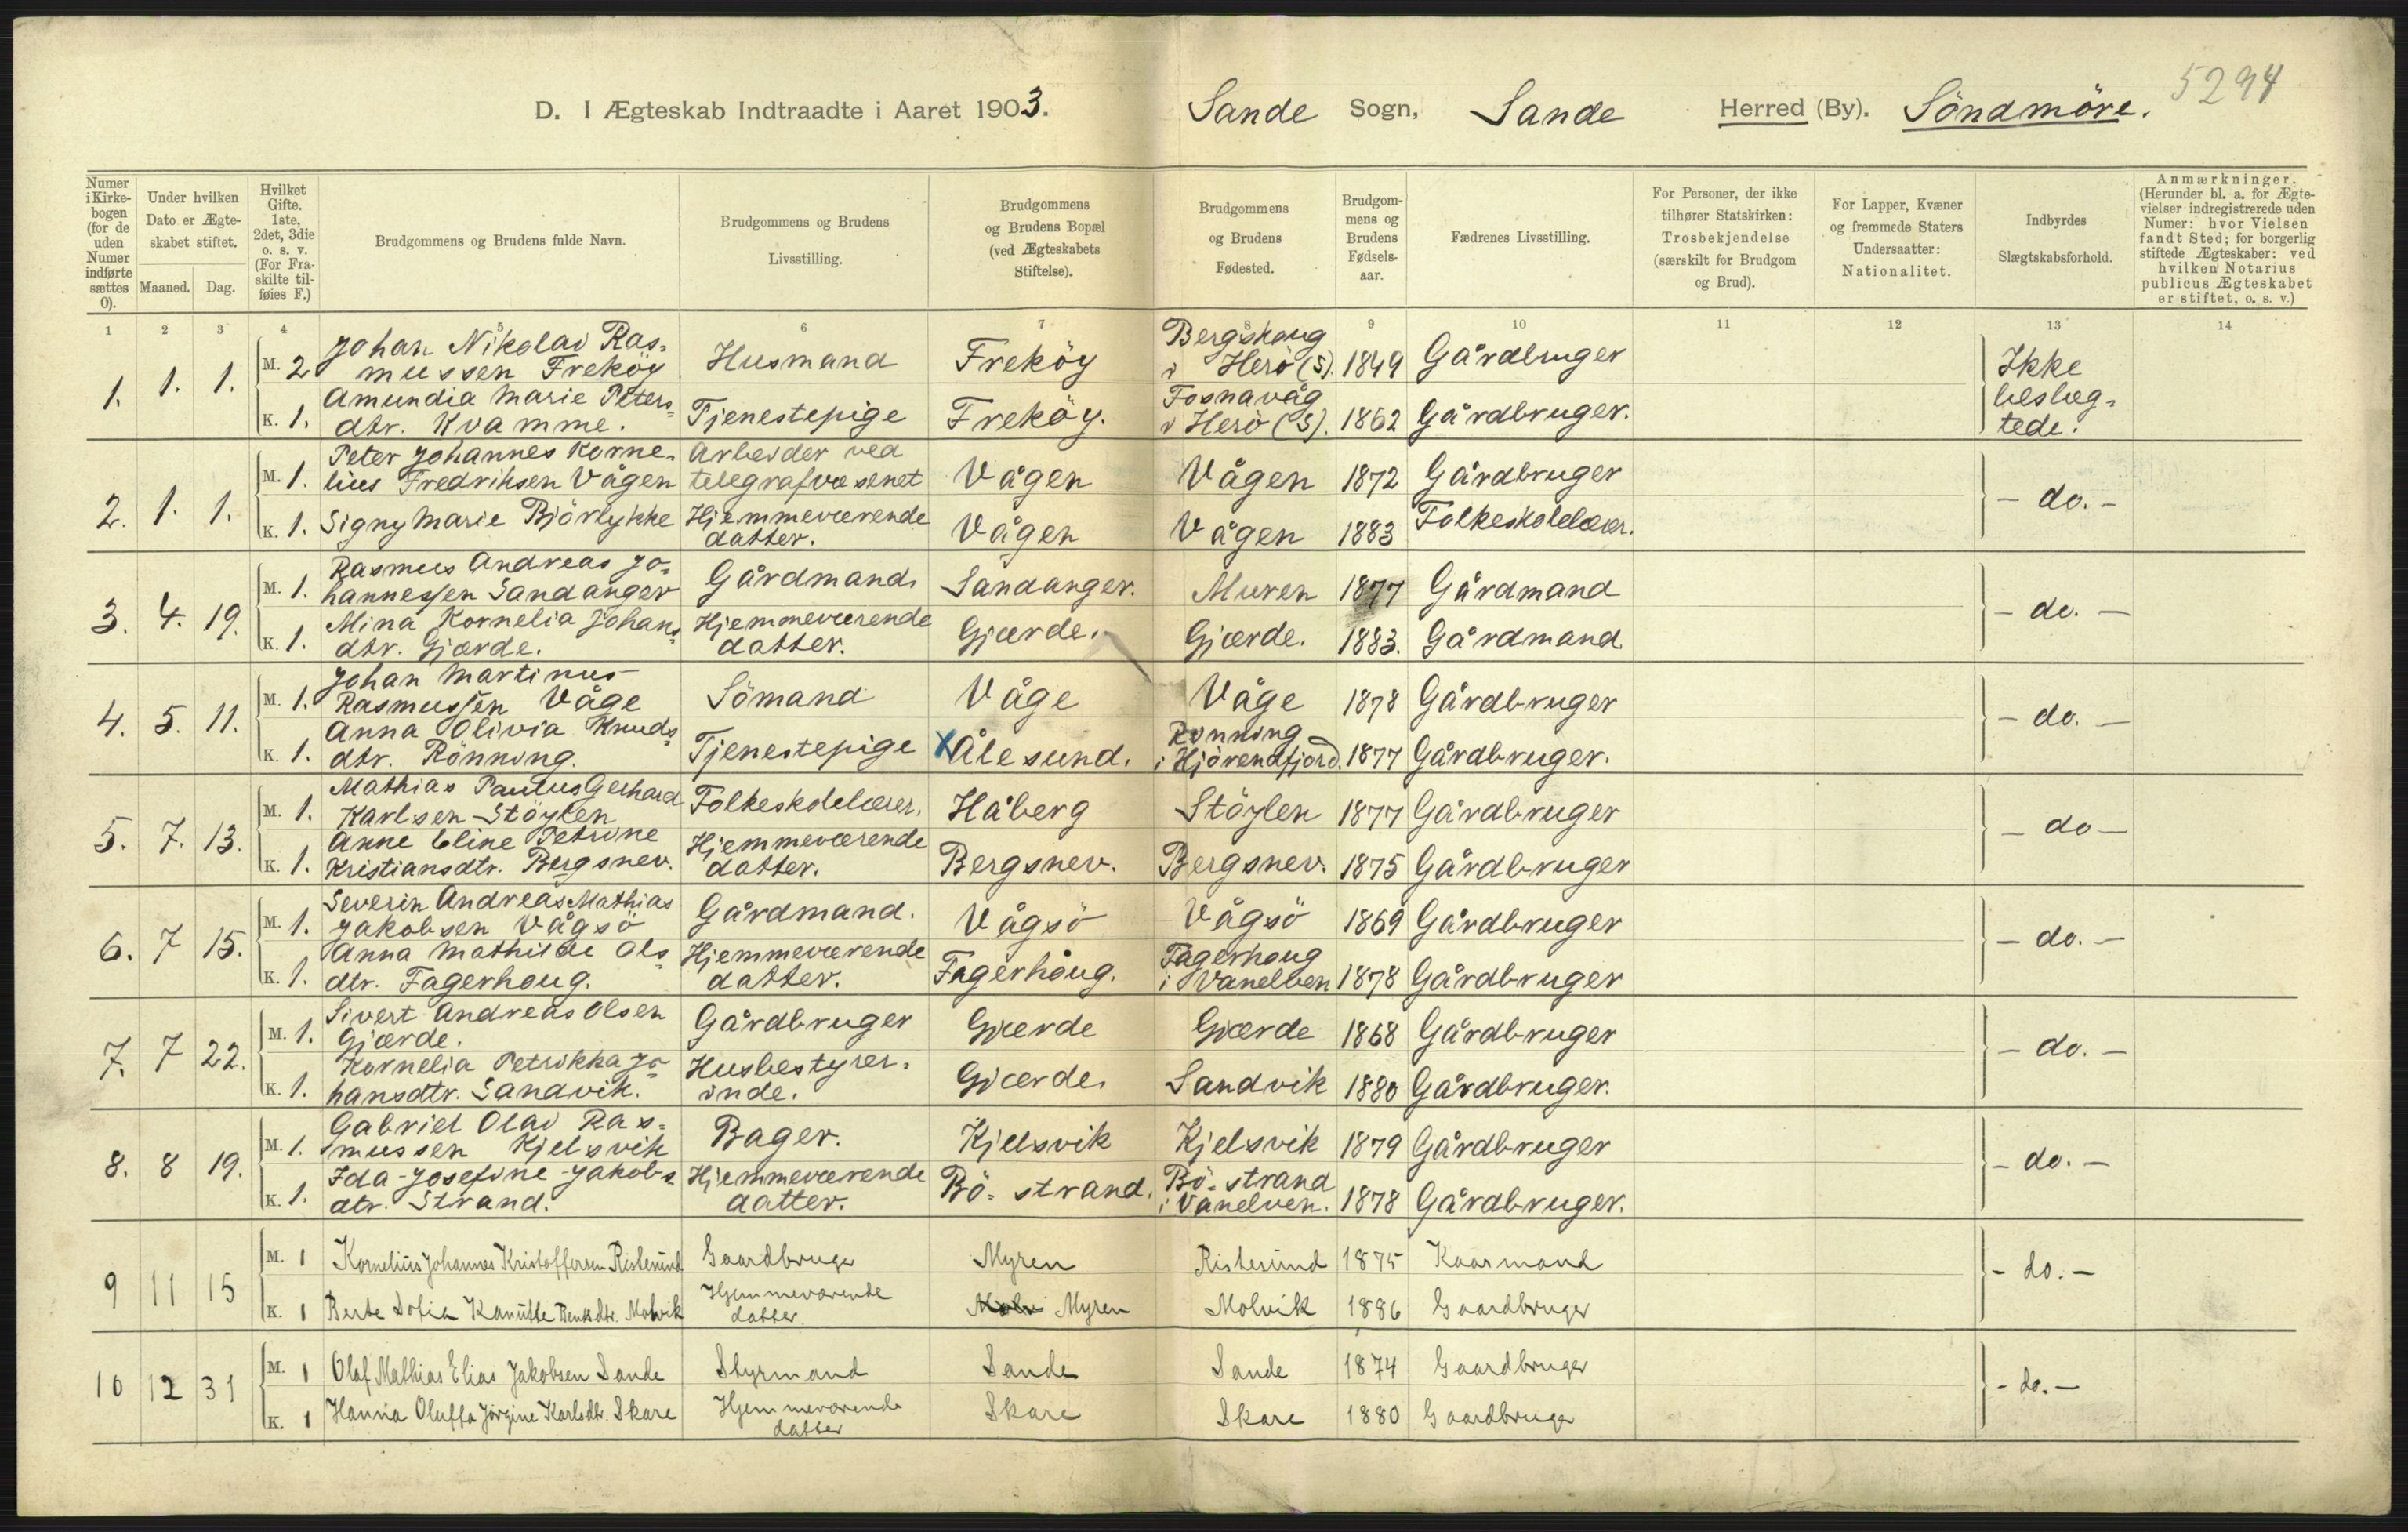 5294
D. I Ægteskab Indtraadte i Aaret 1903. Sande Sogn, Sande Herred (By). Söndmöre.
Numer i Kirkebogen (for de uden Numer indførte sættes 0). Under hvilken Dato er Ægteskabet stiftet. Maaned. Dag. Hvilket Gifte. 1ste, 2det, 3die o. s. v. (For Fraskilte tilføies F.) Brudgommens og Brudens fulde Navn. Brudgommens og Brudens Livsstilling. Brudgommens og Brudens Bopæl (ved Ægteskabets Stiftelse). Brudgommens og Brudens Fødested. Brudgommens og Brudens Fødselsaar. Fædrenes Livsstilling. For Personer, der ikke tilhører Statskirken: Trosbekjendelse (særskilt for Brudgom og Brud). For Lapper, Kvæner og fremmede Staters Undersaatter: Nationalitet. Indbyrdes Slægtskabsforhold. Anmærkninger. (Herunder bl. a. for Ægtevielser indregistrerede uden Numer: hvor Vielsen fandt Sted; for borgerlig stiftede Ægteskaber: ved hvilken Notarius publicus Ægteskabet er stiftet, o. s. v.)
1 2 3 4 5 6 7 8 9 10 11 12 13 14
1. 1. 1. M. 2 Johan Nikolai Ras= mussen Freköy Husmand Freköy Bergshoug i Herö (S). 1849 Gårdbruger Ikke beslæg= tede.
K. 1. Amundia Marie Peters= dtr. Kvamme. Tjenestepige Freköy. Fosnavåg i Herö (S). 1862 Gårdbruger.
2. 1. 1. M. 1. Peter Johannes Korne= lius Fredriksen Vågen Arbeider ved telegrafvæsenet Vågen Vågen 1872 Gårdbruger - do. -
K. 1. Signy Marie Björlykke Hjemmeværende datter. Vågen Vågen 1883 Folkeskolelærer.
3. 4. 19. M. 1. Rasmus Andreas Jo= hannessen Sandanger Gårdmand Sandanger. Muren 1877 Gårdmand - do. -
K. 1. Mina Kornelia Johans= dtr. Gjærde. Hjemmeværende datter. Gjærde. Gjærde. 1883. Gårdmand
4. 5. 11. M. 1. Johan Martinus Rasmussen Våge Sömand Våge Våge 1878 Gårdbruger - do. -
K. 1. Anna Olivia Knuds= dtr. Rönning. Tjenestepige x Ålesund. Rönning i Hjörendfjord. 1877 Gårdbruger.
5. 7. 13. M. 1. Mathias Paulus Gerhard Karlsen Stöylen Folkeskolelærer. Håberg Stöylen 1877 Gårdbruger - do -
K. 1. Anne Eline Petrine Kristiansdtr. Bergsnev. Hjemmeværende datter. Bergsnev. Bergsnev. 1875 Gårdbruger
6. 7 15. M. 1. Severin Andreas Mathias Jakobsen Vågsö Gårdmand. Vågsö Vågsö 1869 Gårdbruger - do. -
K. 1. Anna Mathilde Ols= dtr. Fagerhoug. Hjemmeværende datter. Fagerhoug. Fagerhoug i Vanelven 1878 Gårdbruger
7. 7 22. M. 1. Sivert Andreas Olsen Gjærde. Gårdbruger Gjærde Gjærde 1868 Gårdbruger - do. -
K. 1. Kornelia Petrikka Jo= hansdtr. Sandvik. Husbestyrer= inde. Gjærde. Sandvik 1880 Gårdbruger.
8. 8 19. M. 1. Gabriel Olai Ras= mussen Kjelsvik Bager. Kjelsvik Kjelsvik 1879 Gårdbruger - do. -
K. 1. Ida Josefine Jakobs= dtr. Strand. Hjemmeværende datter. Bö= strand. Bö= strand i Vanelven. 1878 Gårdbruger.
9 11 15 M. 1 Kornelius Johannes Kristoffersen Ristesund Gaardbruger Myren Ristesund 1875 Kaarmand - do. -
K. 1 Berte Sofia Kanutte Benksdtr. Molvik Hjemmeværende datter Molv Myren Molvik 1886 Gaardbruger
10 12 31 M. 1 Olaf Mathias Elias Jakobsen Sande Styrmand Sande Sande 1874 Gaardbruger - do. -
K. 1 Hanna Oluffa Jörgine Karlsdtr. Skare Hjemmeværende datter Skare Skare 1880 Gaardbruger